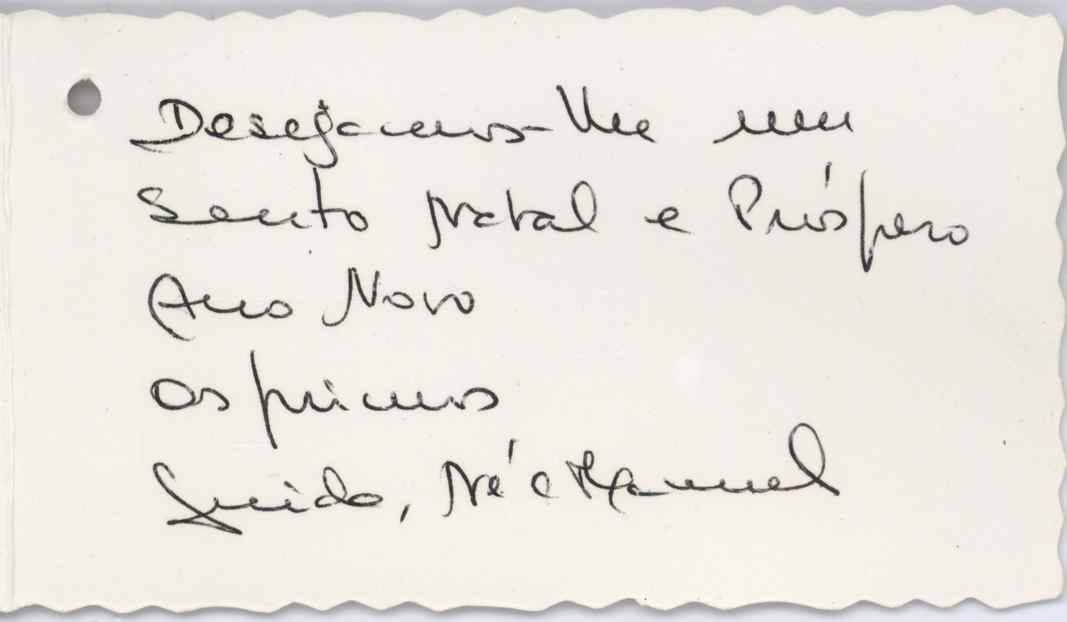 Desejamos-lhe um
Santo Natal e Próspero
Ano Novo
Os primos
Guido, Né e Manuel